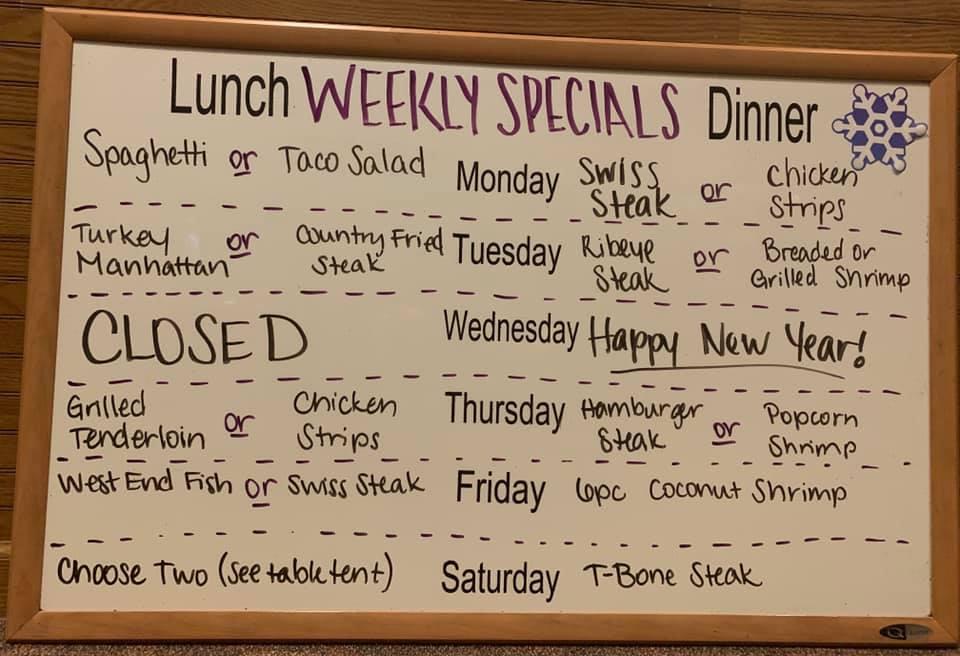 Lunch WEEKLY SPECIALS Dinner
Spaghetti or Taco Salad Monday Swiss Steak or Chicken Strips
Turkey Manhattan or Country Fried Steak Tuesday Ribeye Steak or Breaded or Grilled Shrimp
CLOSED Wednesday Happy New Year!
Grilled Tenderloin or Chicken Strips Thursday Hamburger Steak or Popcorn Shrimp
West End Fish or Swiss Steak Friday 6pc Coconut Shrimp
Choose Two (see table tent) Saturday T-Bone Steak